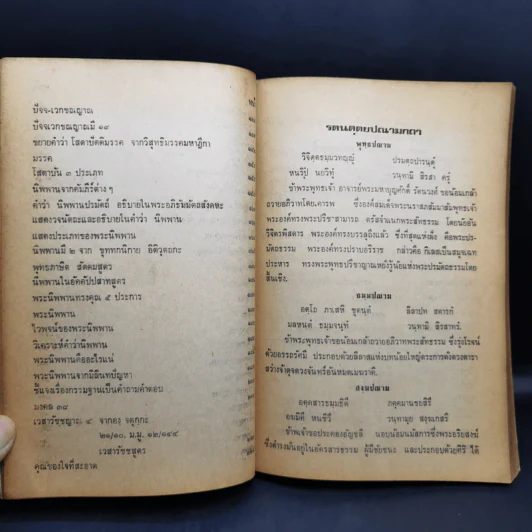 หน้า
ปัจจ-เวกขณญาณ
ปัจจเวกขณญาณมี ๑๙
ขยายคำว่า โสดาปัตติมรรค จากวิสุทธิมรรคมหาฎีกา
มรรค
โสดาบัน ๓ ประเภท
นิพพานจากคัมภีร์ต่าง ๆ
คำว่า นิพพานปรมัตถ์ อธิบายในพระอภิธัมมัตถสังคหะ
แสดงวจนัตถะและอธิบายในคำว่า นิพพาน
แสดงประเภทของพระนิพพาน
นิพพานมี ๒ จาก ขุททกนิกาย อิติวุตตกะ
พุทธภาษิต สัตตมสูตร
นิพพานในอัคคัปปสาทสูตร
พระนิพพานทรงคุณ ๕ ประการ
พระนิพพาน
ไวพจน์ของพระนิพพาน
วิเคราะห์คำว่านิพพาน
พระนิพพานคืออะไรแน่
พระนิพพานจากมิลินทปัญหา
ชี้แจงเรื่องกรรมฐานเป็นคำถามคำตอบ
มงคล ๓๘
เวสารัชชญาณ ๔ จากอง จตุกกะ
๒๑/๑๐. ม.มู. ๑๒/๑๔๔
เวสารัชชสูตร
คุณของใจที่สะอาด
รตนตฺตยปณามคาถา
พุทฺธปณาม
วิจิตฺตธมฺมวทญฺญุํ ปรมตฺถปารนฺตุํ
หนริปุํ นยวิทุํ วนฺทามิ สิรสา ครุํ
ข้าพระพุทธเจ้า อาจารย์พระมหาบุญศักดิ์ รัตนวงศ์ ขอน้อมเกล้า
ถวายอภิวาทโดยเคารพ ซึ่งองค์สมเด็จพระบรมศาสดาสัมมาสัมพุทธเจ้า
พระองค์ทรงพระปรีชาสามารถ ตรัสจำแนกพระสัทธรรม โดยนัยอัน
วิจิตรพิสดาร พระองค์ทรงบรรลุถึงแล้ว ซึ่งที่สุดแห่งฝั่ง คือพระปร-
มัตถธรรม พระองค์ทรงปราบอริราช กล่าวคือ กิเลสเป็นสมุจเฉท
ประหาร ทรงพระพุทธปรีชาญาณหยั่งรู้นัยแห่งพระปรมัตถธรรมโดย
สิ้นเชิง.
ธมฺมปณาม
ข้าพระพุทธเจ้า ขอน้อมเกล้าถวายอภิวาทพระสัทธรรม ซึ่งรุ่งโรจน์
ด้วยอรรถรัศมี ประกอบด้วยลีลาสแห่งบทน้อยใหญ่ดุจระการดั่งดวงดารา
สว่างจ้าดุจดวงจันทร์อันหมดเมฆราคี.
สงฺฆปณาม
ข้าพเจ้าขอประคองอัญชลี นอบน้อมนมัสการซึ่งพระอริยสงฆ์
ซึ่งดำรงมั่นอยู่ในอัตรสารธรรม ผู้มีชัยชนะ และประกอบด้วยคีรี ได้